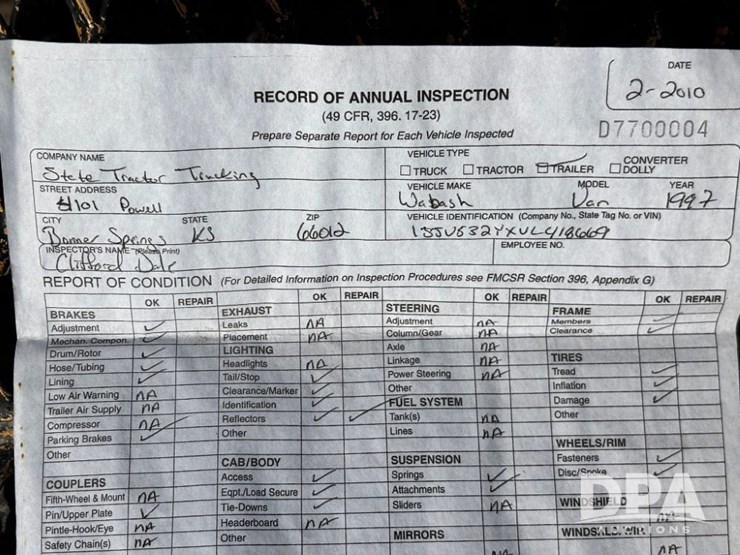 DATE
2-2010
RECORD OF ANNUAL INSPECTION
(49 CFR, 396. 17-23)
Prepare Separate Report for Each Vehicle Inspected
D7700004
COMPANY NAME
State Tractor Trucking
VEHICLE TYPE
TRUCK TRACTOR TRAILER CONVERTER DOLLY
STREET ADDRESS
4101 Powell
VEHICLE MAKE MODEL YEAR
Wabash Van 1997
CITY STATE ZIP
Bonner Springs KS 66012
VEHICLE IDENTIFICATION (Company No., State Tag No. or VIN)
1JJV532YXVL418669
INSPECTOR'S NAME (Please Print)
Clifford Dale
EMPLOYEE NO.
REPORT OF CONDITION (For Detailed Information on Inspection Procedures see FMCSR Section 396, Appendix G)
OK REPAIR
BRAKES
Adjustment ✓
Mechan. Compon. ✓
Drum/Rotor ✓
Hose/Tubing ✓
Lining ✓
Low Air Warning NA
Trailer Air Supply NA
Compressor NA
Parking Brakes ✓
Other
COUPLERS
Fifth-Wheel & Mount NA
Pin/Upper Plate ✓
Pintle-Hook/Eye NA
Safety Chain(s) NA
OK REPAIR
EXHAUST
Leaks NA
Placement NA
LIGHTING
Headlights NA
Tail/Stop ✓
Clearance/Marker ✓
Identification ✓
Reflectors ✓ ✓
Other
CAB/BODY
Access ✓
Eqpt./Load Secure ✓
Tie-Downs ✓
Headerboard NA
Other
OK REPAIR
STEERING
Adjustment NA
Column/Gear NA
Axle NA
Linkage NA
Power Steering NA
Other
FUEL SYSTEM
Tank(s) NA
Lines NA
SUSPENSION
Springs ✓
Attachments ✓
Sliders NA
MIRRORS
OK REPAIR
FRAME
Members ✓
Clearance ✓
TIRES
Tread ✓
Inflation ✓
Damage ✓
Other
WHEELS/RIM
Fasteners ✓
Disc/Spoke ✓
WINDSHIELD
NA
DPA
AUCTIONS